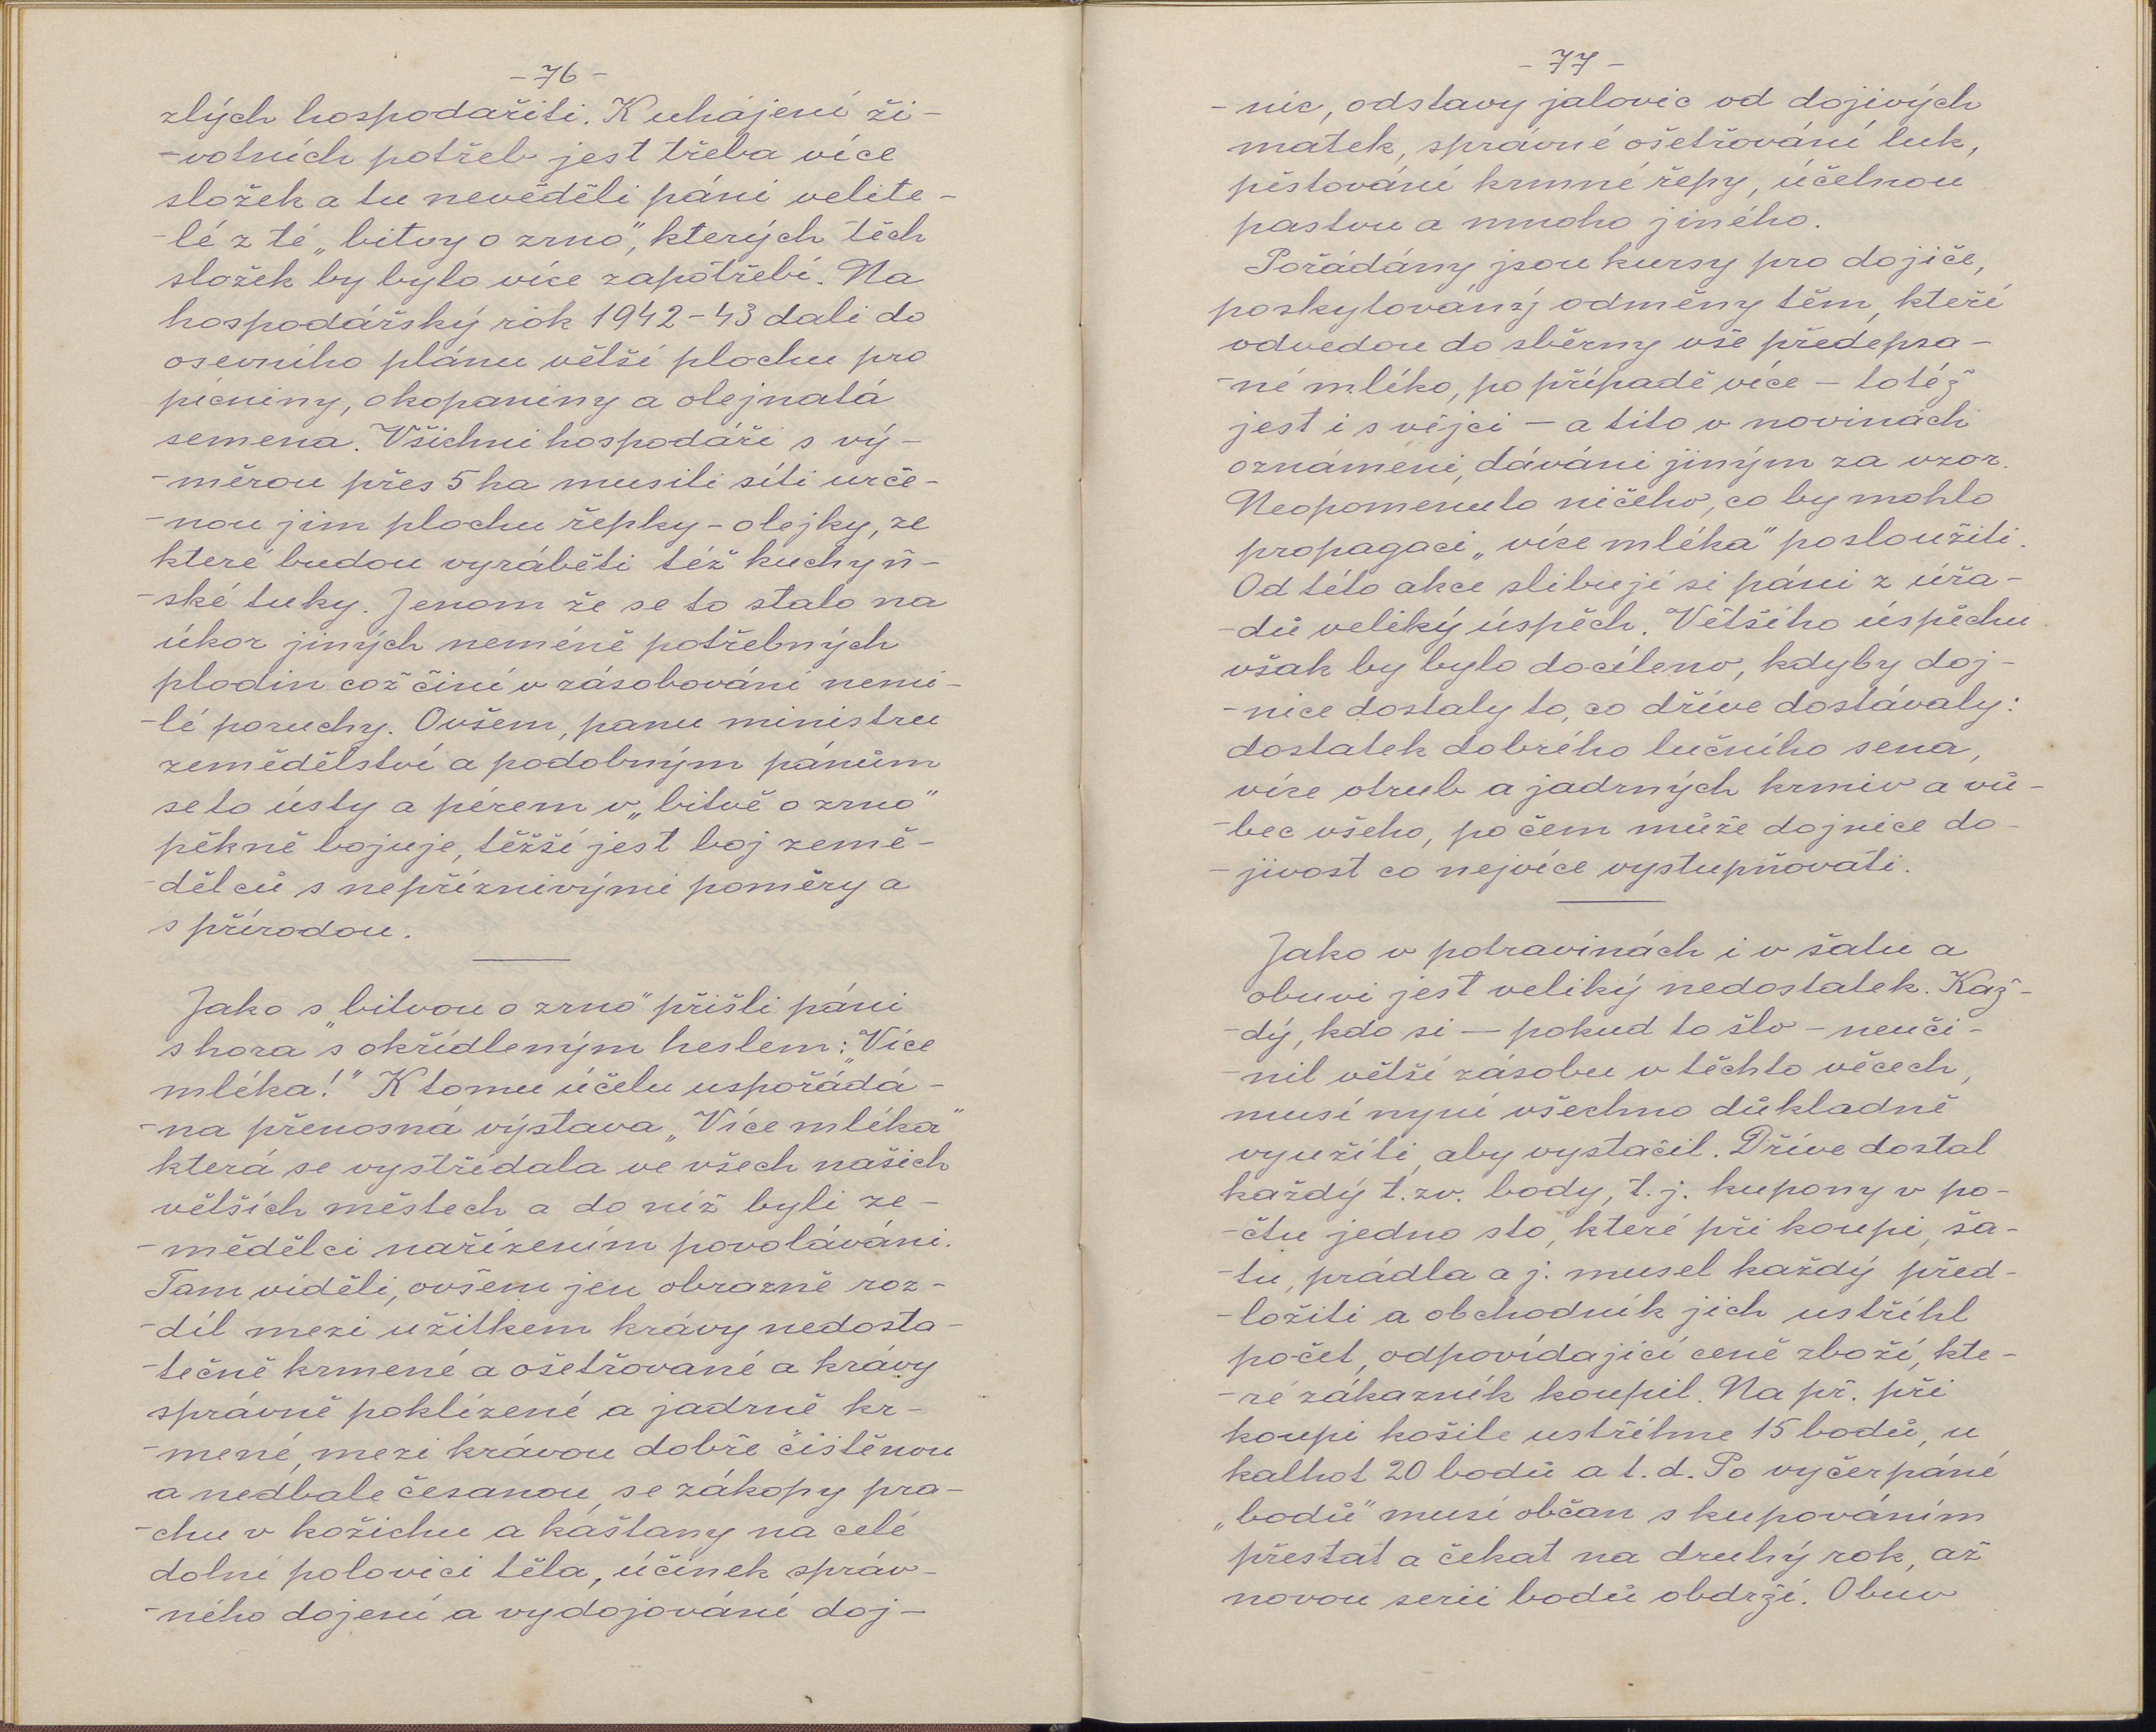 -76-
zlých hospodařiti. K uhájení ži-
-votních potřeb jest třeba více
složek a tu nevěděli páni velite-
-lé z té „bitvy o zrno", kterých těch
složek by bylo více zapotřebí. Na
hospodářský rok 1942-43 dali do
osevního plánu větší plochu pro
pícniny, okopaniny a olejnatá
semena. Všichni hospodáři s vý-
-měrou přes 5 ha musili síti urče-
-nou jim plochu řepky-olejky, ze
které budou vyráběti též kuchyň-
-ské tuky. Jenom že se to stalo na
úkor jiných neméně potřebných
plodin což činí v zásobování nemi-
-lé poruchy. Ovšem, panu ministru
zemědělství a podobným pánům
se to ústy a pérem v „bitvě o zrno"
pěkně bojuje, těžší jest boj země-
-dělců s nepříznivými poměry a
s přírodou.
Jako s „bitvou o zrno" přišli páni
shora s okřídleným heslem: „Více
mléka!" K tomu účelu uspořádá-
-na přenosná výstava „Více mléka"
která se vystřídala ve všech našich
větších městech a do níž byli ze-
-mědělci nařízením povoláváni.
Tam viděli, ovšem jen obrazně roz-
-díl mezi užitkem krávy nedosta-
-tečně krmené a ošetřované a krávy
správně poklízené a jadrně kr-
-mené, mezi krávou dobře čistěnou
a nedbale česanou, se zákopy pra-
-chu v kožichu a kaštany na celé
dolní polovici těla, účinek správ-
-ného dojení a vydojování doj-
-77-
-nic, odstavy jalovic od dojivých
matek, správné ošetřování luk,
pěstování krmné řepy, účelnou
pastvu a mnoho jiného.
Pořádány jsou kursy pro dojiče,
poskytovány odměny těm, kteří
odvedou do sběrny vše předepsa-
-né mléko, po případě více - totéž
jest i s vejci - a tito v novinách
oznámeni, dáváni jiným za vzor.
Neopomenuto ničeho, co by mohlo
propagaci „více mléka" posloužiti.
Od této akce slibují si páni z úřa-
-dů veliký úspěch. Většího úspěchu
však by bylo docíleno, kdyby doj-
-nice dostaly to, co dříve dostávaly:
dostatek dobrého lučního sena,
více otrub a jadrných krmiv a vů-
-bec všeho, po čem může dojnice do-
-jivost co nejvíce vystupňovati.
Jako v potravinách i v šatu a
obuvi jest veliký nedostatek. Kaž-
-dý, kdo si - pokud to šlo - neuči-
-nil větší zásobu v těchto věcech,
musí nyní všechno důkladně
využíti, aby vystačil. Dříve dostal
každý t. zv. body, t. j. kupony v po-
-čtu jedno sto, které při koupi, ša-
-tu, prádla a j. musel každý před-
-ložiti a obchodník jich ustřihl
počet, odpovídající ceně zboží, kte-
-ré zákazník koupil. Na př. při
koupi košile ustřihne 15 bodů, u
kalhot 20 bodů a t. d. Po vyčerpání
„bodů" musí občan s kupováním
přestat a čekat na druhý rok, až
novou serii bodů obdrží. Obuv